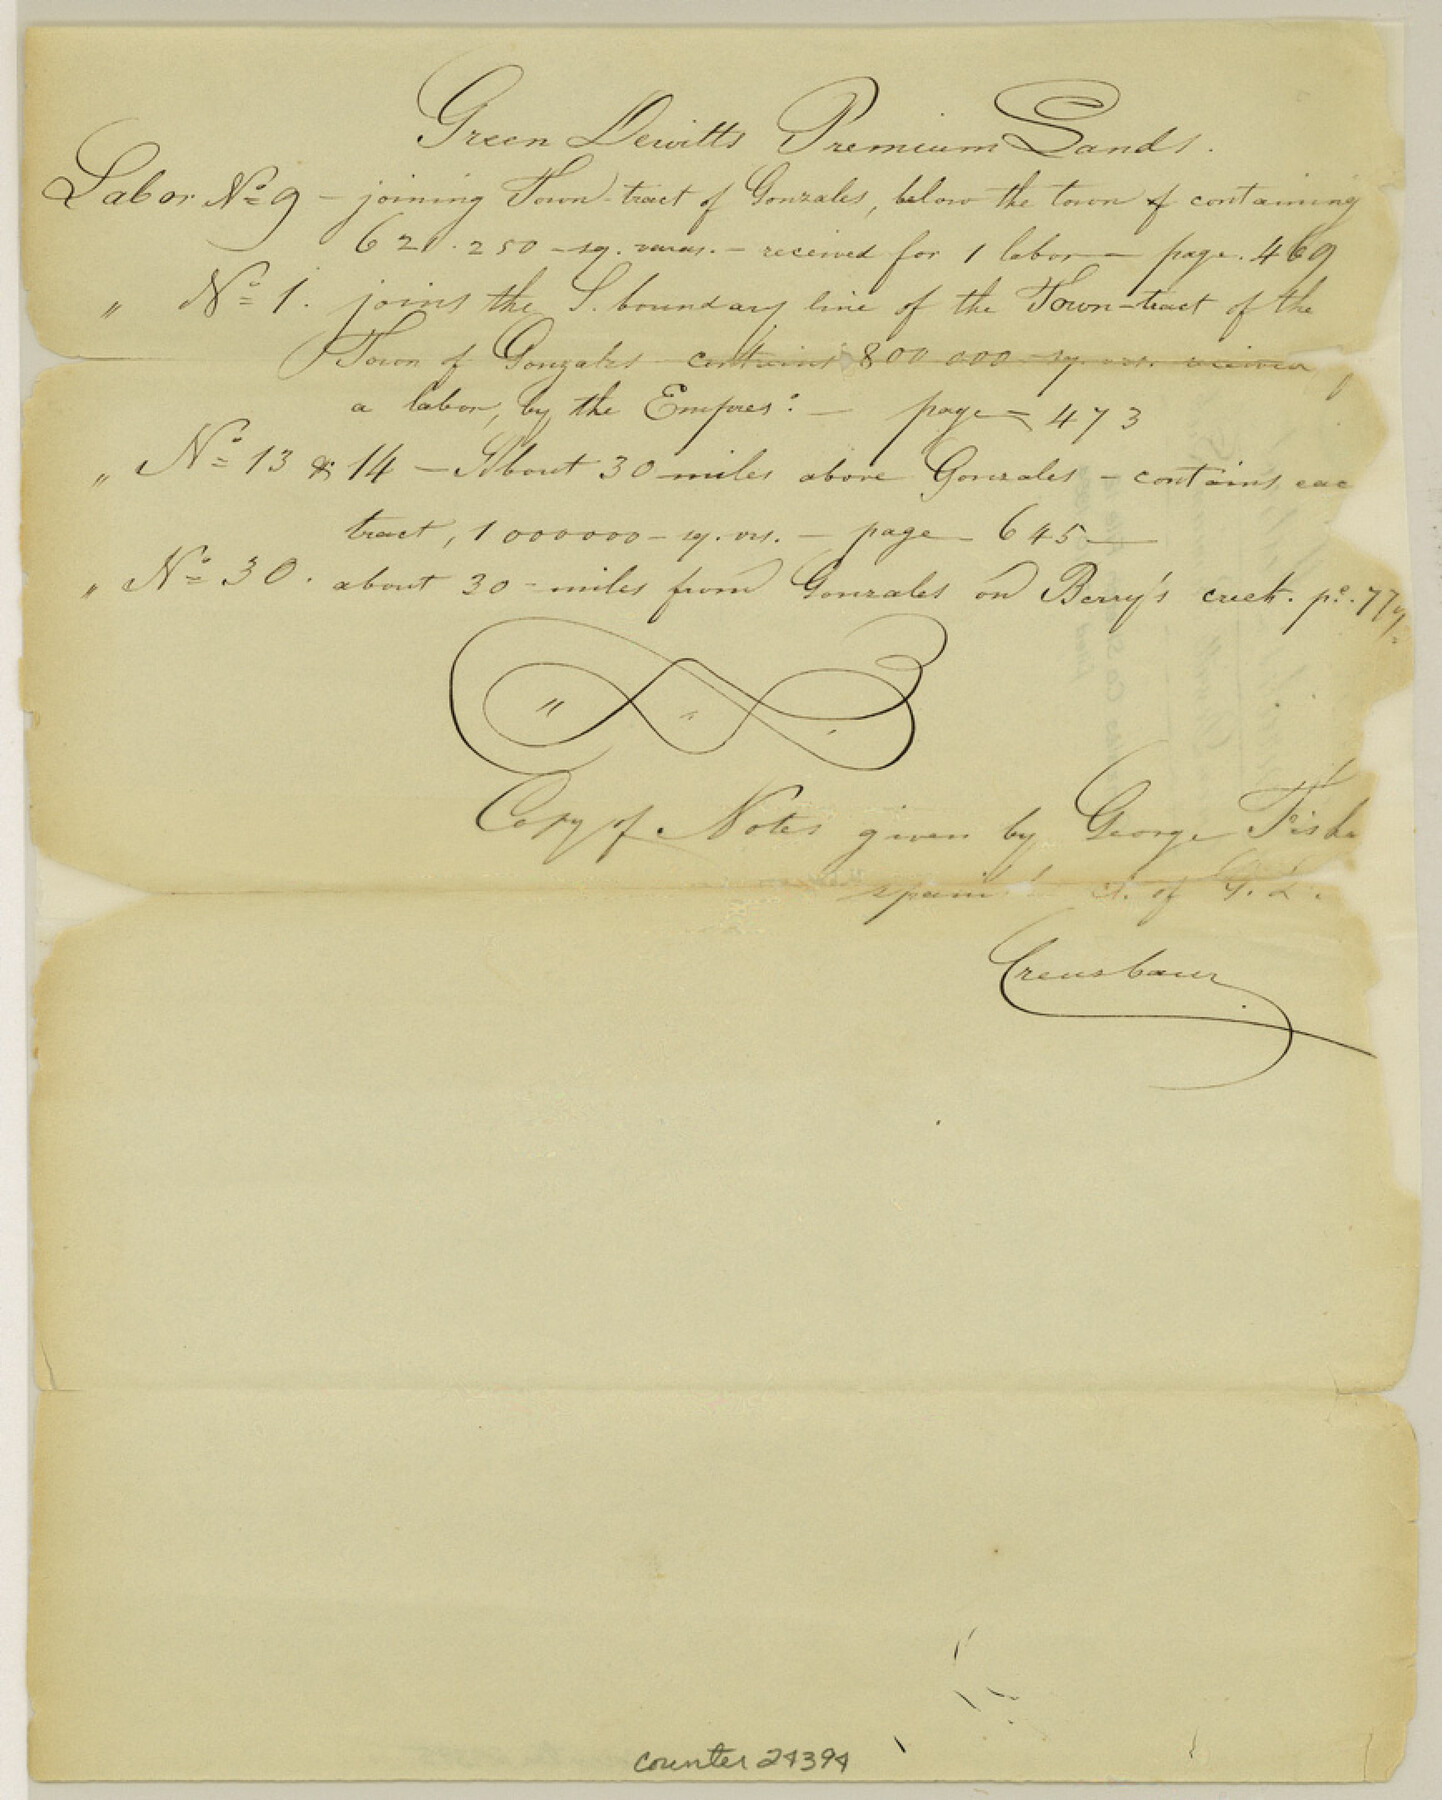 Green Dewitts Premium Lands.
Labor No 9 - joining Town-tract of Gonzales, below the town & containing
621.250 - sq. varas. - received for 1 labor - page. 469
" No 1. joins the S. boundary line of the Town-tract of the
Town of Gonzales contains 800 000 sq. vrs.
a labor, by the Empreso: - page - 473
" No 13 & 14 - About 30 miles above Gonzales - contains eac
tract, 1 000000 - sq. vrs. - page - 645 -
" No 30. about 30 - miles from Gonzales on Berry's creek. pe. 77
Copy of Notes given by George Fishe
of G.L.
Creuzbaur
counter 24394